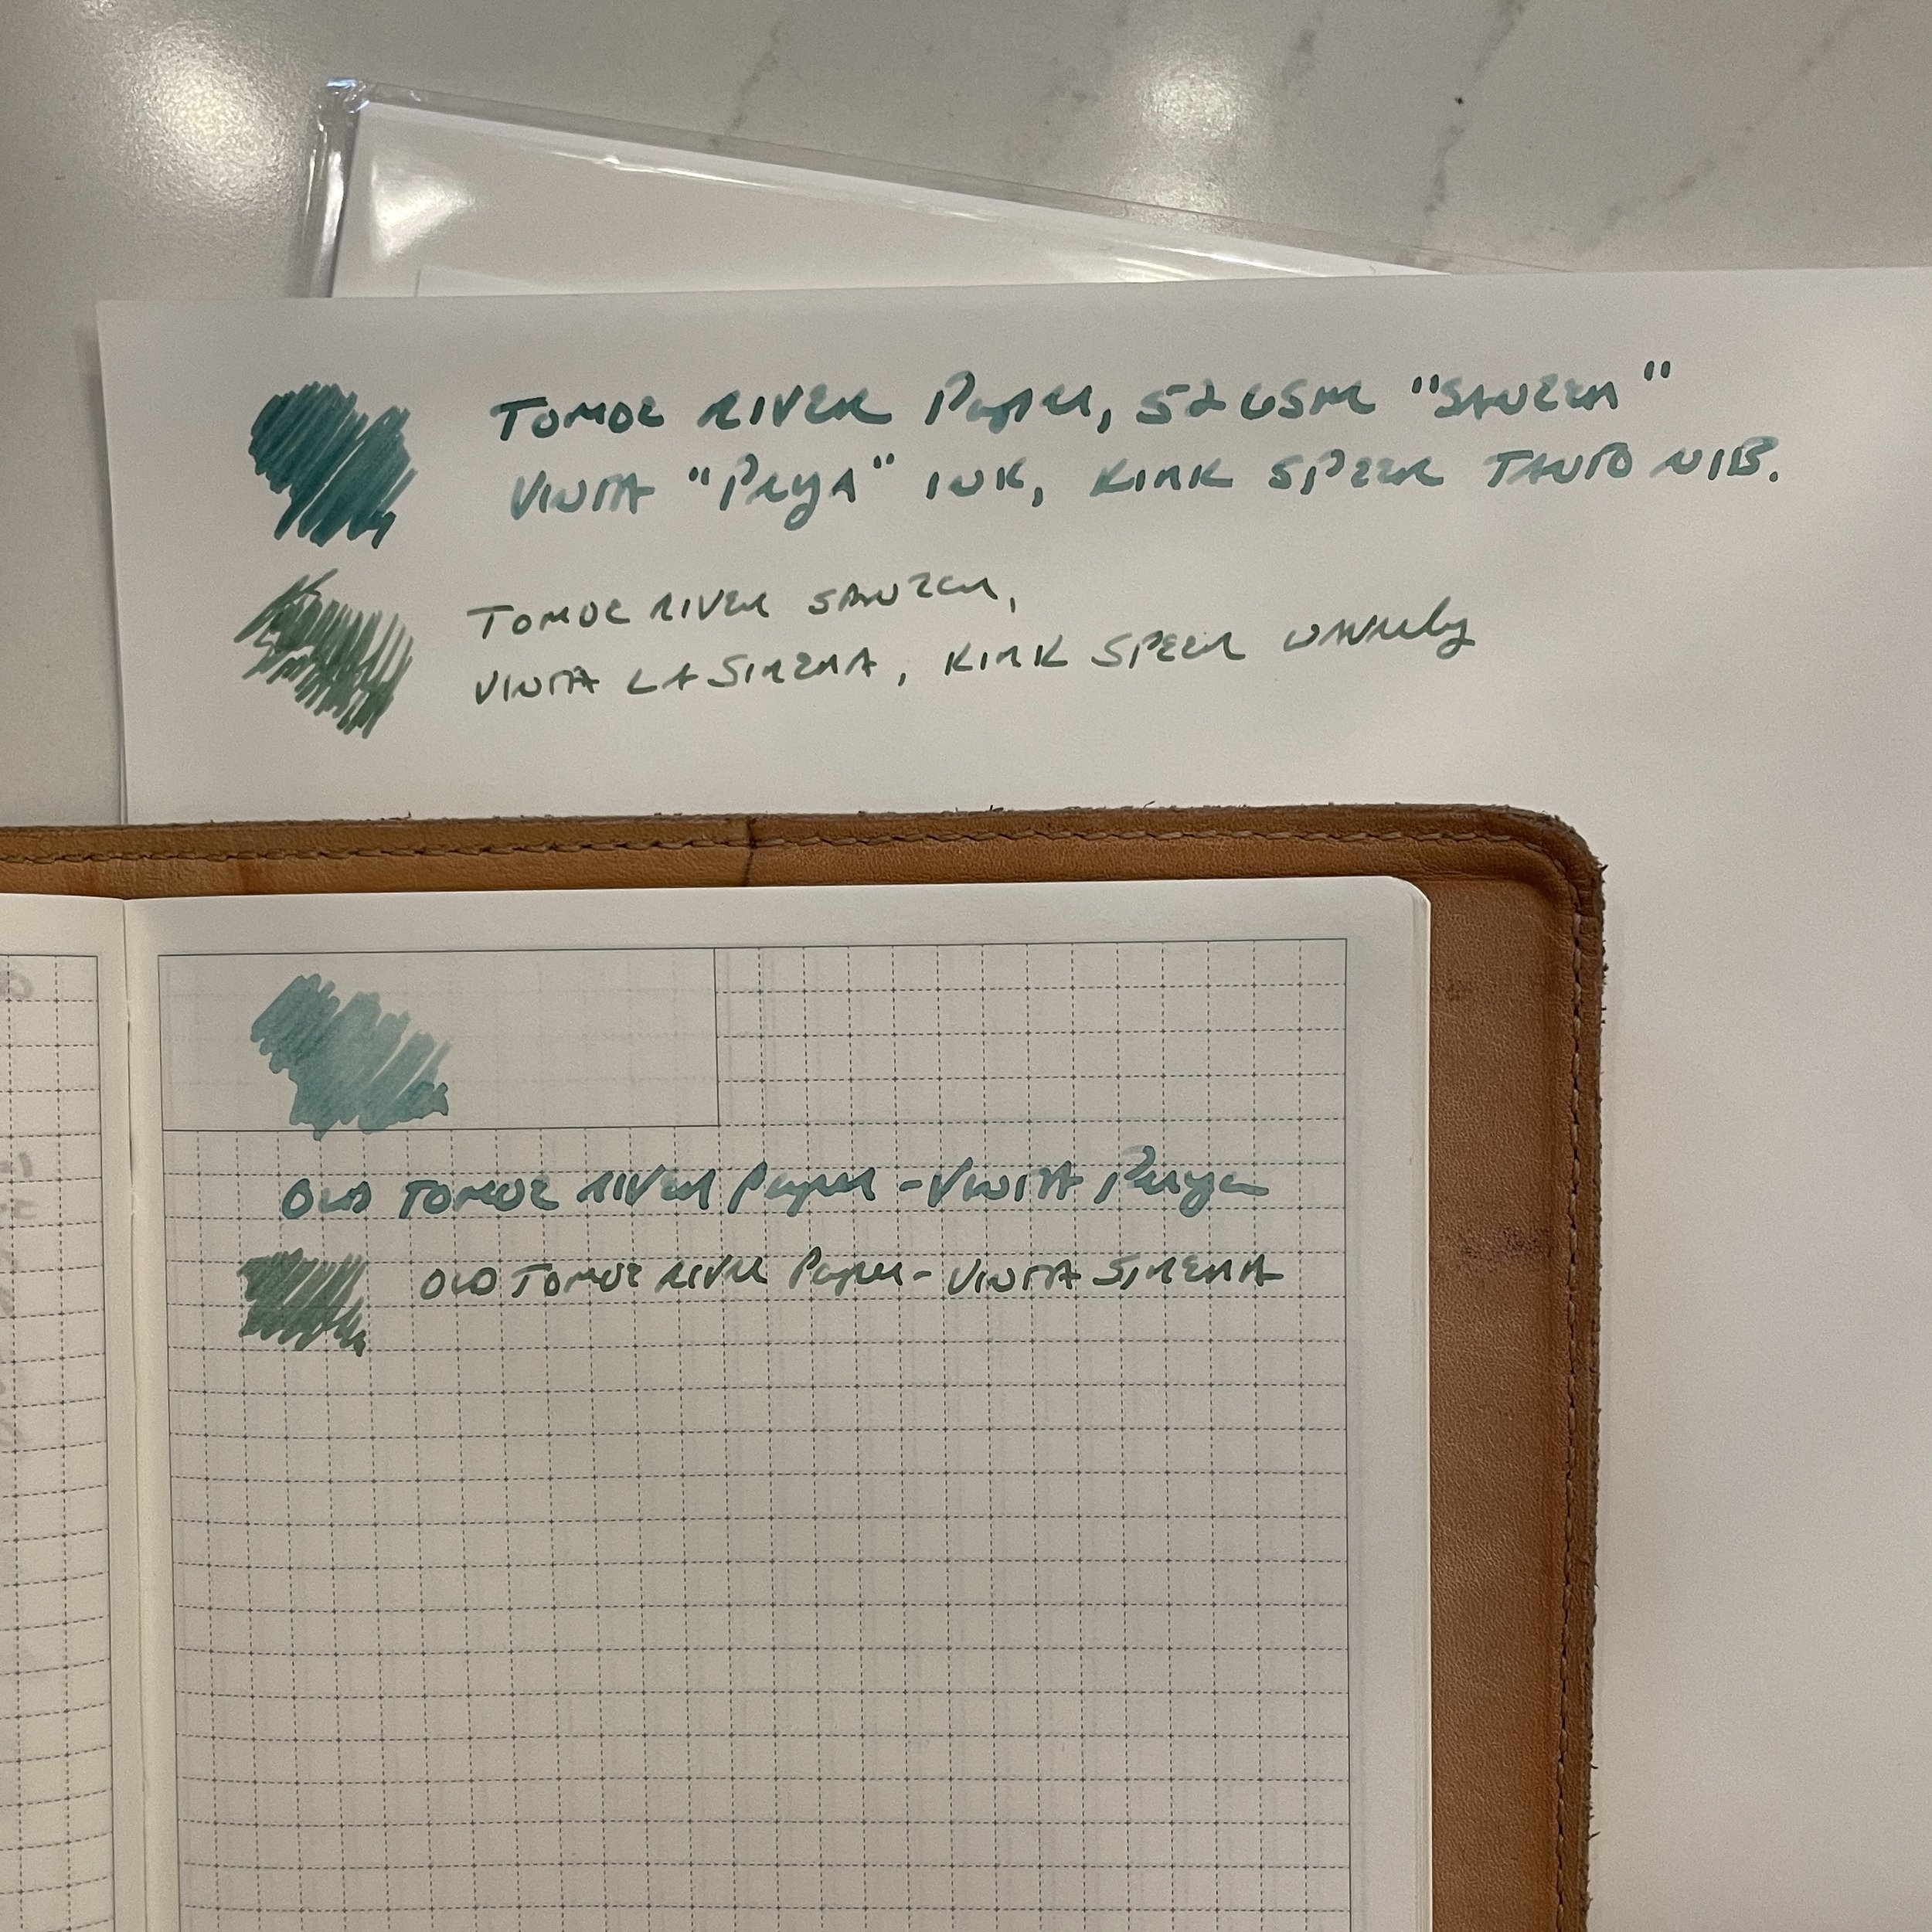 TOMOE RIVER Paper, 52 GSM "SANZEN"
VINTA "Perya" INK, KIRK SPEER TANTO NIB.
TOMOE RIVER SANZEN,
VINTA LA SIRENA, KIRK SPEER
OLD TOMOE RIVER Paper - VINTA Perya
OLD TOMOE RIVER Paper - VINTA SIRENA